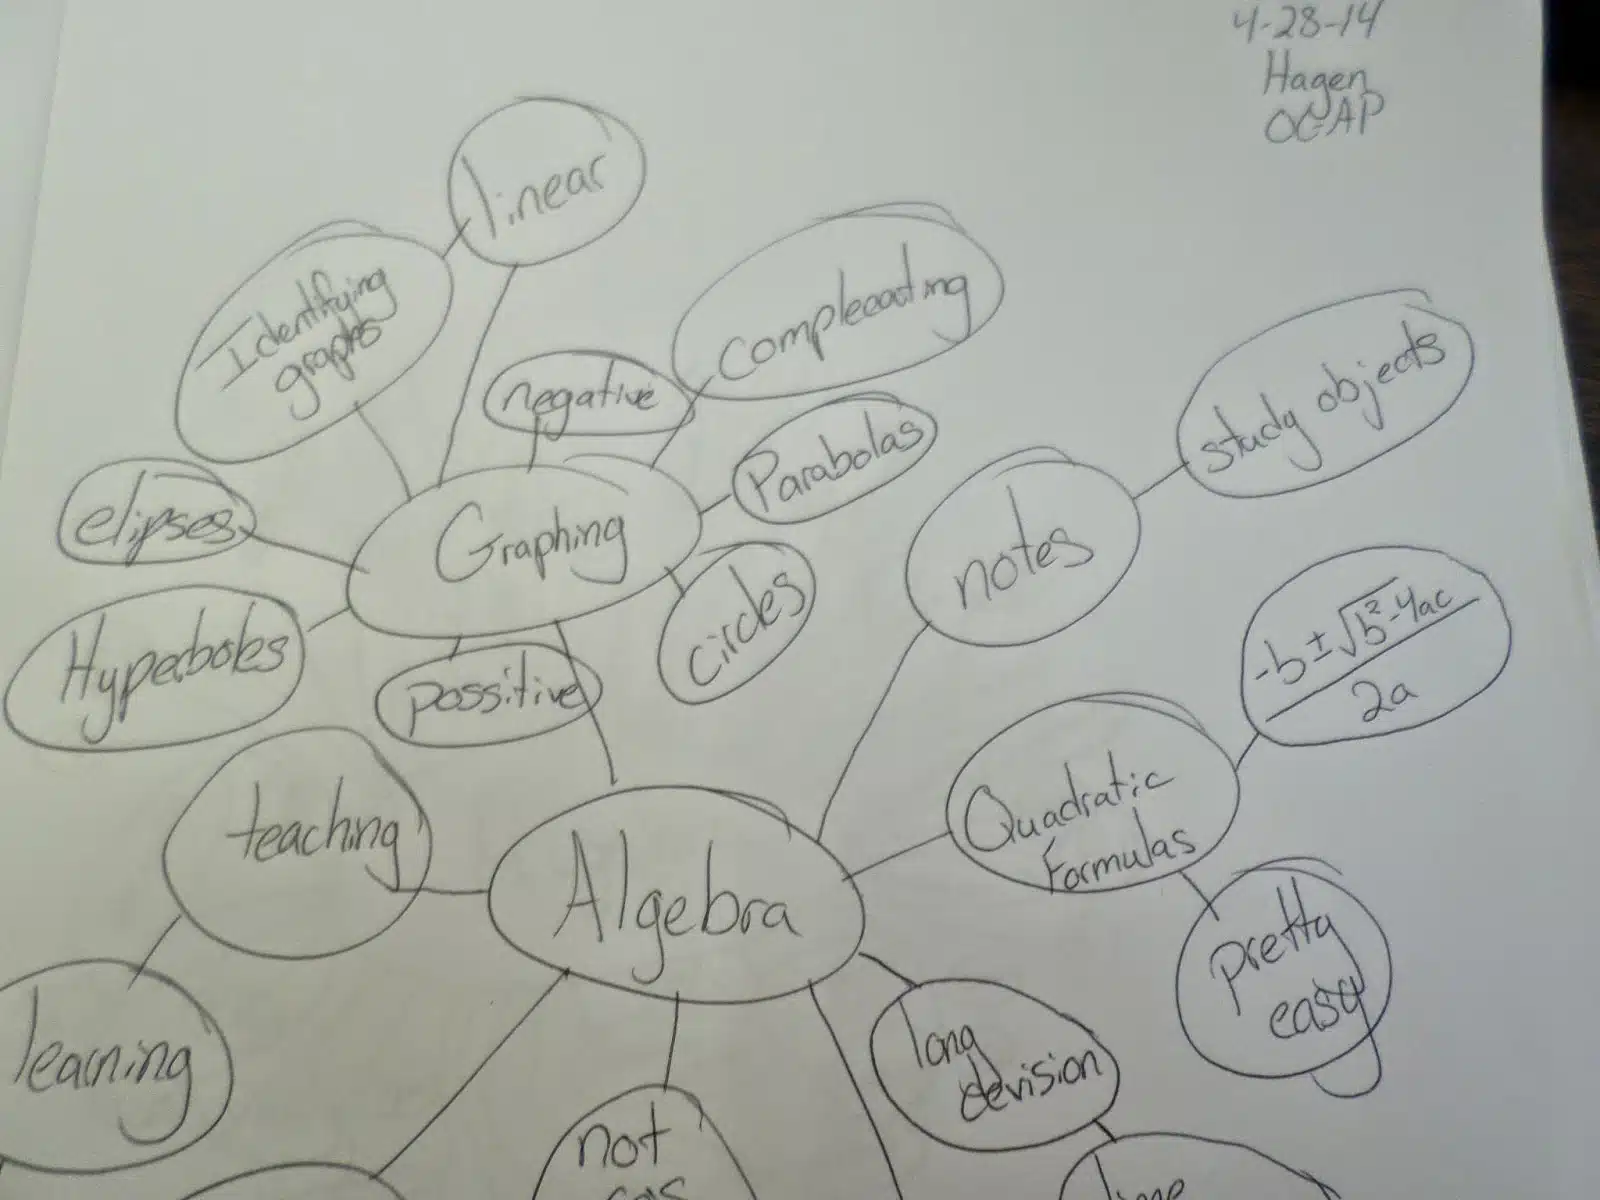 4-28-14
Hagen
OCAP
linear
Identifying
graphs
compleeating
negative
Parabolas
study objects
elipses
Graphing
notes
circles
Hyperboles
possitive
-b ± √b²-4ac
2a
teaching
Quadratic
Formulas
Algebra
pretty
easy
learning
long
devision
not